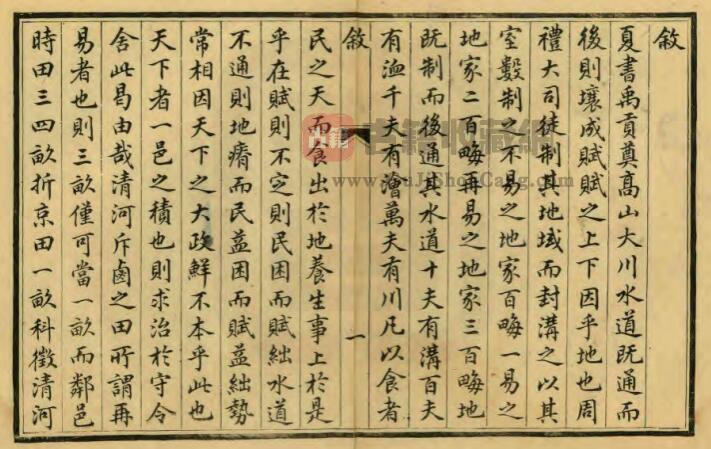 敘
夏書禹貢奠高山大川水道既通而
後則壤成賦賦之上下因乎地也周
禮大司徒制其地域而封溝之以其
室數制之不易之地家百畮一易之
地家二百畮再易之地家三百畮地
既制而後通其水道十夫有溝百夫
有洫千夫有澮萬夫有川凡以食者
敘
一
民之天而食出於地養生事上於是
乎在賦則不定則民困而賦絀水道
不通則地瘠而民益困而賦益絀勢
常相因天下之大政鮮不本乎此也
天下者一邑之積也則求治於守令
舍此曷由哉清河斥鹵之田所謂再
易者也則三畝僅可當一畝而鄰邑
時田三四畝折京田一畝科徵清河
www.
ShouCang.com